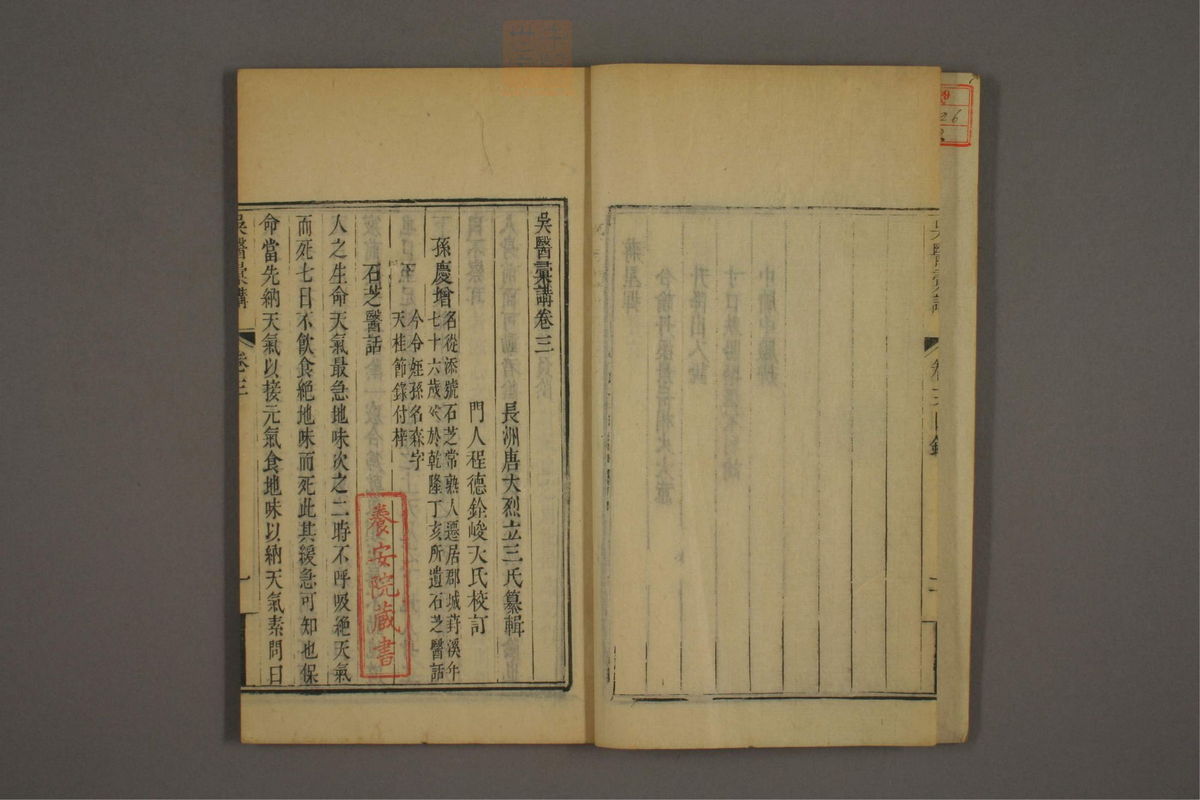 吳醫彙講
卷三目錄
二
吳醫彙講卷三
長洲唐大烈立三氏纂輯
門人程德銓峻天氏校訂
孫慶增
名從添號石芝常熟人遷居郡城葑溪年
七十六歲歿於乾隆丁亥所遺石芝醫話
今令姪孫名森字
天桂節錄付梓
石芝醫話
人之生命天氣最急地味次之二時不呼吸絕天氣
而死七日不飲食絕地味而死此其緩急可知也保
命當先納天氣以接元氣食地味以納天氣素問曰
吳醫彙講
卷三
一
養安院藏書